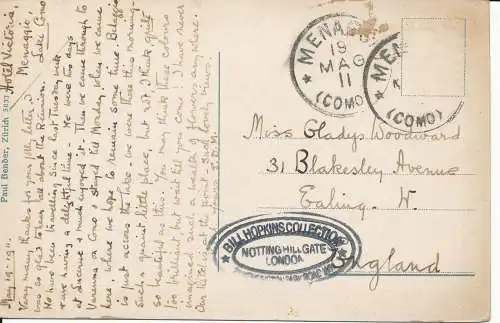 Hotel Victoria,
Menaggio,
Lake Como
May 19. 1911.
Very many thanks for your jolly letter, I
was so glad to hear all about the Reunion.
We have been travelling since last Tuesday week
& are having a delightful time. We were two days
at & much enjoyed it. Then we came through to
Varenna on Como & stayed till Monday, when we came
here, where we hope to remain some time. Bellaggio
is just across the lake & we were there this morning –
such a quaint little place, but not, I think, quite
so beautiful as this. You may think these colours
too brilliant but wait till you come! I have never
imagined such a wealth of flowers any where.
Our Hotel is on the point – such lovely views.
Paul Bender, Zürich
MENAGGIO
19
MAG
11
(COMO)
MENA
(COMO)
Miss Gladys Woodward
31 Blakesley Avenue
Ealing. W.
England
BILL HOPKINS COLLECTION
NOTTING HILL GATE
LONDON